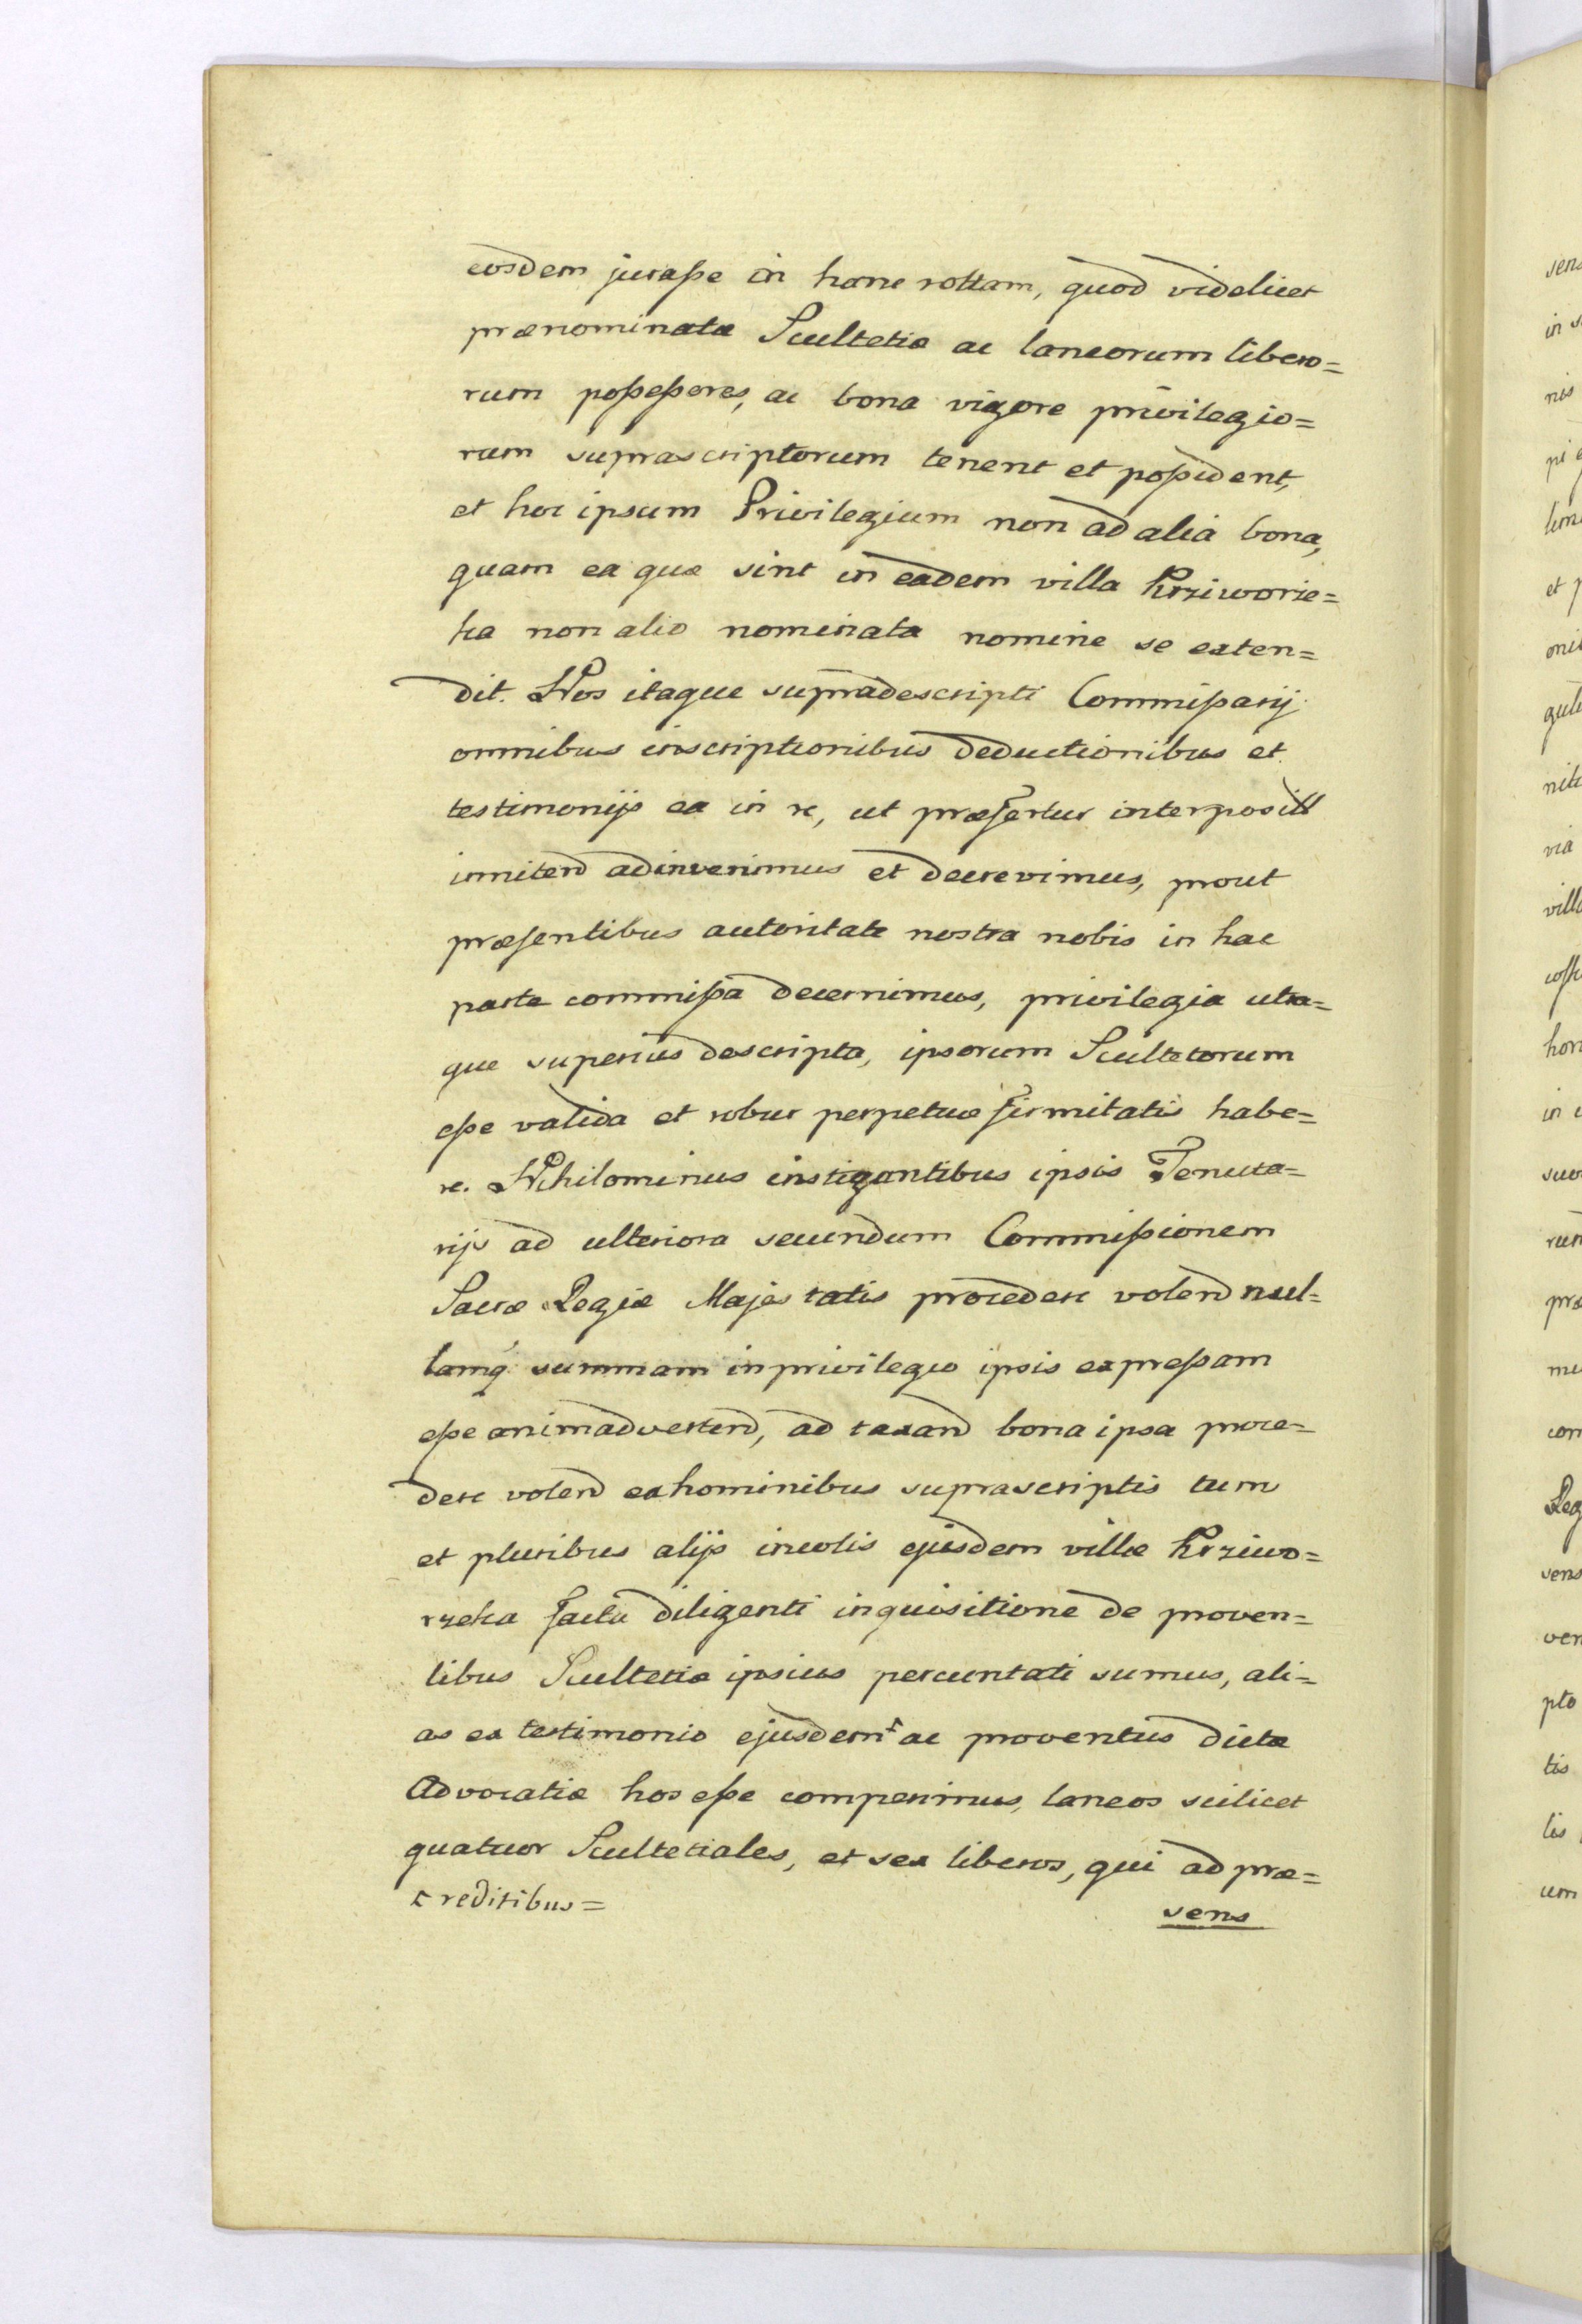 eosdem jurasse in hanc rottam, quod videlicet
prænominatæ Scultetiæ ac laneorum libero=
rum possessores, ac bona vigore privilegio=
rum suprascriptorum tenent et possident,
et hoc ipsum Privilegium non ad alia bona,
quam ea quæ sint in eadem villa Krziworze=
ka non alio nominata nomine se exten=
dit. Nos itaque supradescripti Commissarij
omnibus inscriptionibus deductionibus et
testimonijs ea in re, ut præfertur interposit
innitend adinvenimus et decrevimus, prout
præsentibus autoritate nostra nobis in hac
parte commissa decernimus, privilegia utra=
que superius descripta, ipsorum Scultetorum
esse valida et robur perpetuæ firmitatis habe=
re. Nihilominus instigantibus ipsis Tenuta=
rijs ad ulteriora secundum Commissionem
Sacræ Regiæ Majestatis procedere volend nul=
lamq: summam in privilegio ipsis expressam
esse animadvertend, ad taxand bona ipsa proce=
dere volend ex hominibus suprascriptis tum
et pluribus alijs incolis ejusdem villæ Krziwo=
rzeka facta diligenti inquisitione de proven=
tibus Scultetiæ ipsius percuntati sumus, ali=
as ex testimonio ejusdem ac proventus dictæ
Advocatiæ hos esse comperimus, laneos scilicet
quatuor Scultetiales, et sex liberos, qui ad præ=
reditibus=
sens